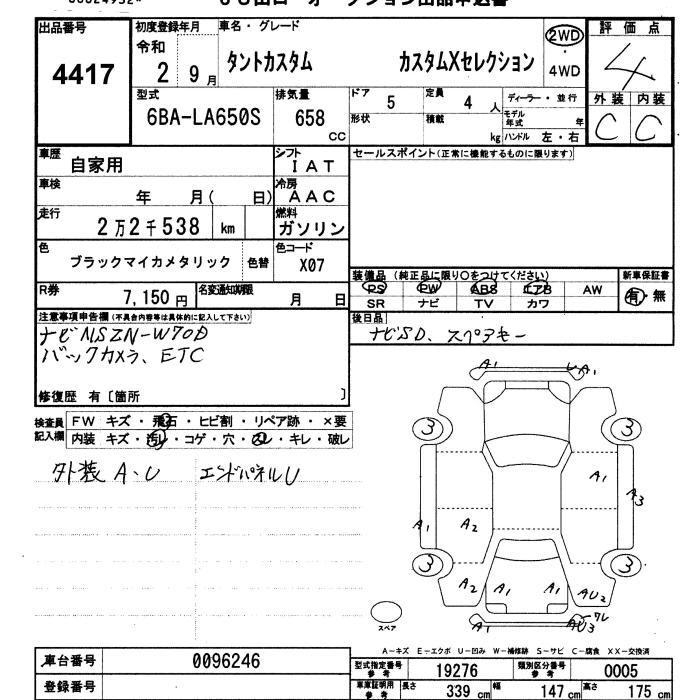 出品番号 4417
初度登録年月 令和 2 9月
車名・グレード
タントカスタム カスタムXセレクション
2WD・4WD
評価点 4
外装 内装
C C
型式 6BA-LA650S
排気量 658 CC
ドア 5
定員 4 人
形状
積載 kg
ディーラー・並行
モデル年式 年
ハンドル 左・右
車歴 自家用
シフト IAT
車検 年 月( 日)
冷房 AAC
走行 2万2千538 km
燃料 ガソリン
色 ブラックマイカメタリック
色替
色コード X07
R券 7,150円
名変通知期限 月 日
セールスポイント(正常に機能するものに限ります)
装備品 (純正品に限り○をつけてください)
PS PW ABS エアB AW
SR ナビ TV カワ
新車保証書
有・無
後日品
ナビSD、スペアキー
注意事項申告欄(不具合内容等は具体的に記入して下さい)
ナビNSZN-W70D
バックカメラ、ETC
修復歴 有〔箇所 〕
検査員記入欄
FW キズ・飛石・ヒビ割・リペア跡・×要
内装 キズ・汚レ・コゲ・穴・スレ・キレ・破レ
外装 A、U エンドパネルU
A1
A1
3 3
A1
A3
A1
A2
3 3
A2 A1 A1 AU2
A1
AU3 ワレ
スペア
A-キズ E-エクボ U-凹み W-補修跡 S-サビ C-腐食 XX-交換済
車台番号 0096246
登録番号
型式指定番号 参考 19276
類別区分番号 参考 0005
車庫証明用 参考 長さ 339 cm 幅 147 cm 高さ 175 cm